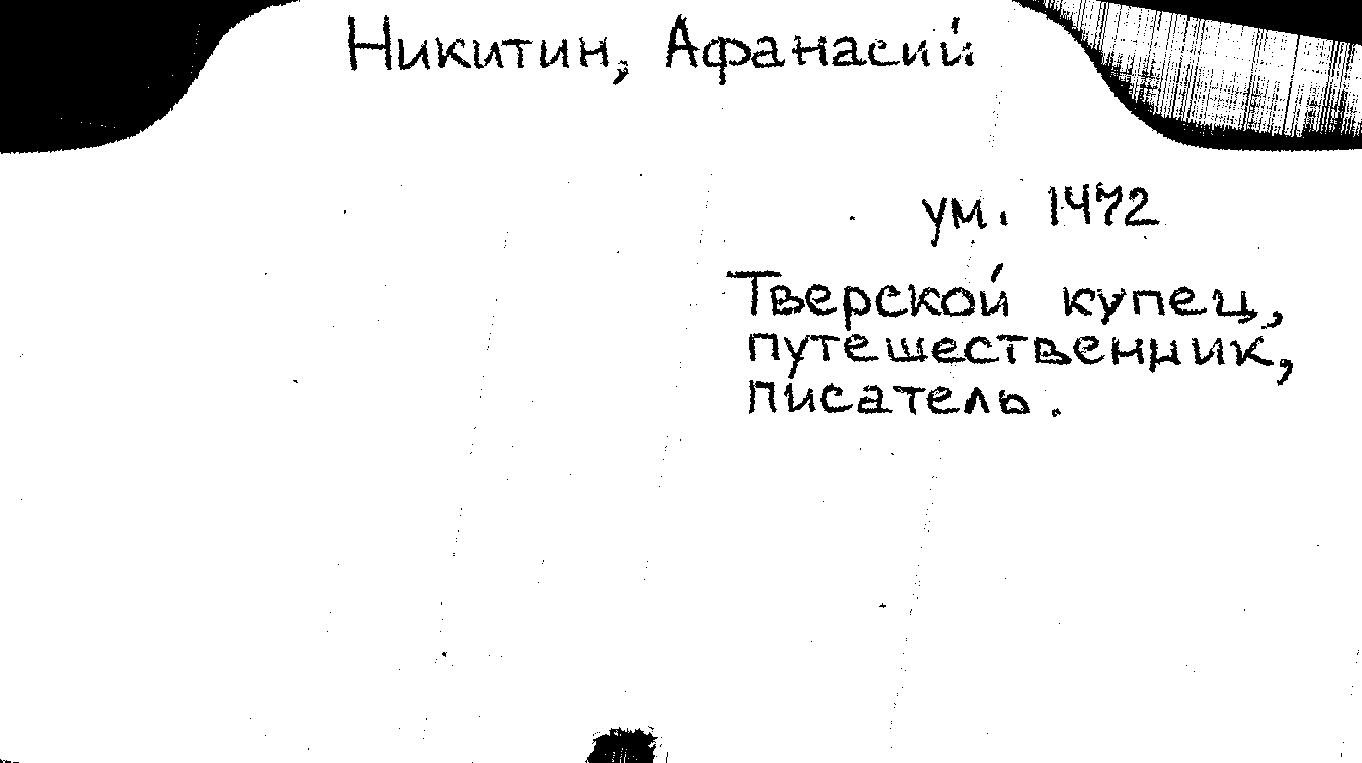 Никитин, Афанасий
ум. 1472
Тверской купец,
путешественник,
писатель.